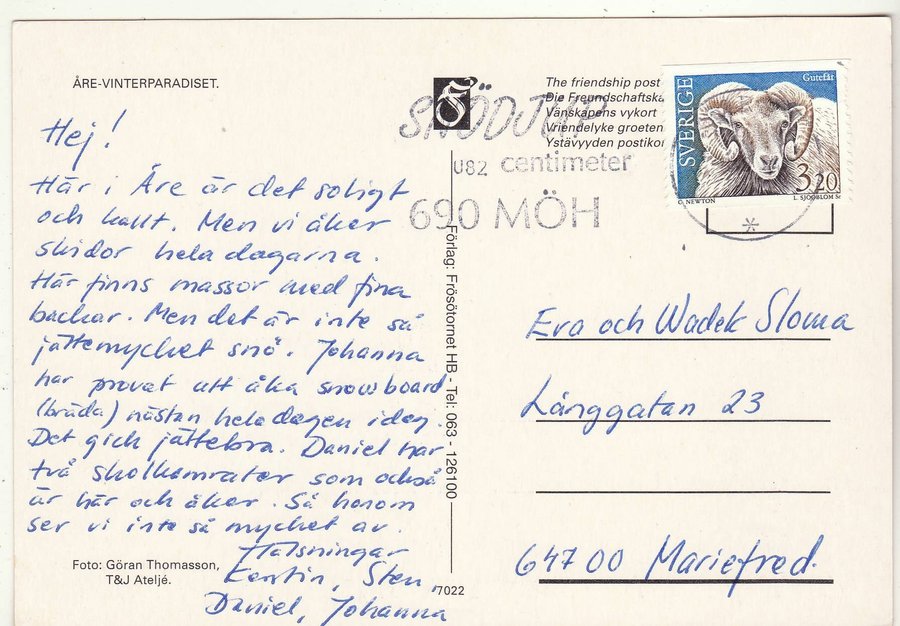 ÅRE-VINTERPARADISET.
Hej!
Här i Åre är det soligt
och kallt. Men vi åker
skidor hela dagarna.
Här finns massor med fina
backar. Men det är inte så
jättemycket snö. Johanna
har provat att åka snowboard
(bräda) nästan hela dagen idag.
Det gick jättebra. Daniel har
två skolkamrater som också
är här och åker. Så honom
ser vi inte så mycket av.
Hälsningar
Kerstin, Sten,
Daniel, Johanna
Foto: Göran Thomasson,
T&J Ateljé.
7022
Förlag: Frösötornet HB - Tel: 063 - 126100
The friendship post
Die Freundschaftska
Vänskapens vykort
Vriendelyke groeten
Ystävyyden postikor
SNÖDJUP
082 centimeter
690 MÖH
SVERIGE
Gutefår
3.20
C. NEWTON
L. SJÖÖBLOM Sc
Eva och Wadek Sloma
Långgatan 23
647 00 Mariefred.